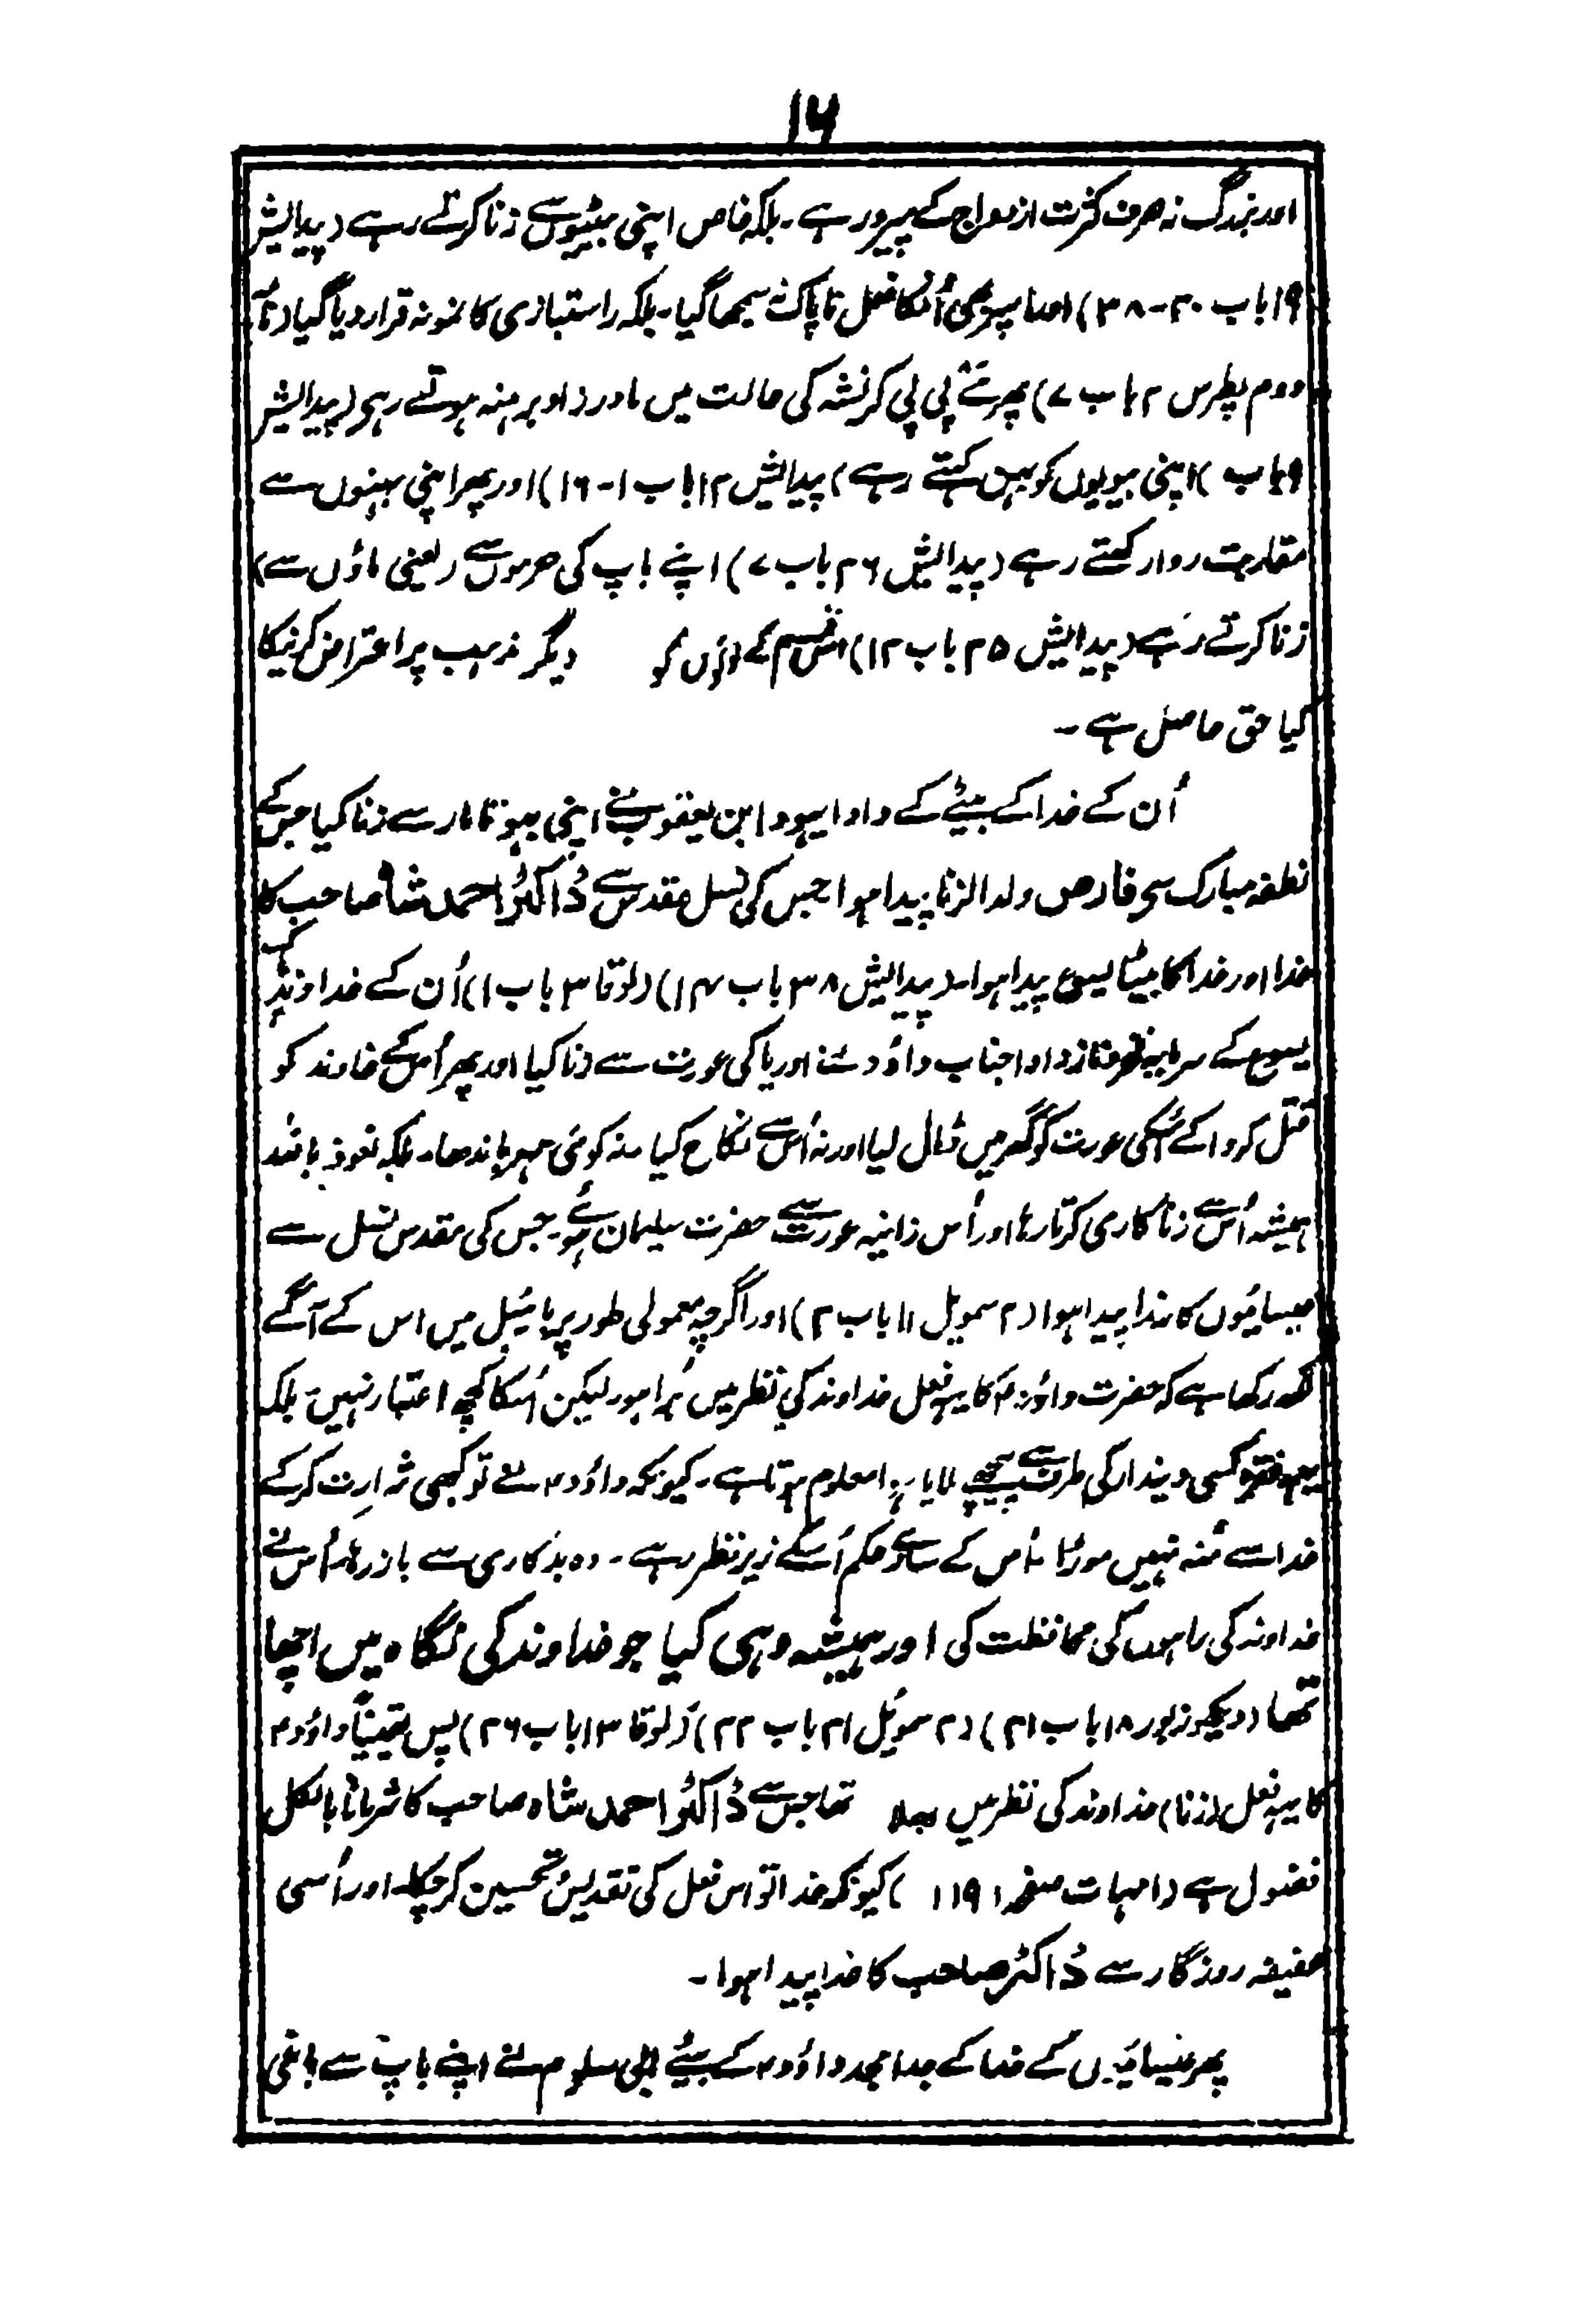 ۱۶
اور بزرگ نہ صرف کثرت ازدواج کے پیرو رہے۔ بلکہ خاص اپنی بیٹیوں سے زنا کرتے رہے (پیدایش
۱۹ باب ۳۰-۳۸) اور اسپر بھی اُنکا فعل ناپاک نہ سمجھا گیا۔ بلکہ راستبازی کا نمونہ قرار دیا گیا
دوم پطرس ۲ باب ۷) پھر مئے پی پی کر نشہ کی حالت میں مادر زاد برہنہ ہوتے رہی (پیدایش
۹ باب) اپنی بیویوں کو بہن کہتے رہے (پیدایش ۱۲ باب ۱-۱۶) اور پھر اپنی بہنوں سے
مقاربت روا رکھتے رہے (پیدایش ۲۶ باب ۷) اپنے باپ کی حرموں سے (یعنی ماؤں سے)
زنا کرتے رہے (پیدایش ۳۵ باب ۲۲) اس قسم کے لوگوں کو دیگر مذہب پر اعتراض کرنیکا
کیا حق حاصل ہے۔
اُن کے خدا کے بیٹے کے دادا یہودا ابن یعقوب نے اپنی بہو تامار سے زنا کیا جس کے
نطفہ مبارک سی فارص ولد الزنا پیدا ہوا جس کی نسل مقدس سے ڈاکٹر احمد شاہ صاحب کا
خدا اور خدا کا بیٹا یسوع پیدا ہوا۔ (پیدایش ۳۸ باب ۱۴) (لوقا ۳ باب ۱) اُن کے خداوند
یسوع کے سرمایہ ناز دادا جناب داؤد نے اوریا کی عورت سے زنا کیا اور پھر اُس کے خاوند کو
قتل کروا کے اُسکی عورت کو گھر میں ڈال لیا اور نہ اُس سے نکاح کیا نہ کوئی مہر باندھا۔ بلکہ نعوذ باللہ
ہمیشہ اُس سے زنا کاری کرتا رہا اور اُس زانیہ عورت سے حضرت سلیمان ہوئے۔ جس کی مقدس نسل سے
عیسائیوں کا خدا پیدا ہوا (۲ سمویل ۱۱ باب ۲) اور اگرچہ معمولی طور پر بائیبل میں اس کے آگے
لکھ رکھا ہے کہ حضرت داؤدؑ کا یہ فعل خداوند کی نظر میں بُرا ہوا۔ لیکن اُسکا کچھ اعتبار نہیں۔ بلکہ
یہ فقرہ کسی دیندار کی طرف سے پیچھے ملایا ہوا معلوم ہوتا ہے۔ کیونکہ داؤدؑ نے تو کبھی شرارت کر کے
خدا سے مُنہ نہیں موڑا۔ اُس کے سارے حکم اُسکے زیر نظر رہے۔ وہ بدکاری سے باز رہا۔ اُس نے
خداوند کی راہوں کی محافظت کی اور ہمیشہ وہی کیا جو خداوند کی نگاہ میں اچھا
تھا (دیکھو زبور ۱۸ باب ۲۱) (۲ سموئیل ۲۱ باب ۲۲) (لوقا ۱۳ باب ۲۶) پس یقیناً داؤدؑ
کا یہ فعل (زنا) خداوند کی نظر میں بھلا تھا جس سے ڈاکٹر احمد شاہ صاحب کا شرمانا بالکل
فضول ہے (امہات صفحہ ۱۱۹۱) کیونکہ خدا تو اس فعل کی تقدیس و تحسین کر چکا۔ اور اُسی
عفیفہ روزگار سے ڈاکٹر صاحب کا خدا پیدا ہوا۔
پھر عیسائیوں کے خدا کے جد امجد داؤدؑ کے بیٹے ابی سلوم نے اپنے باپ سے باغی